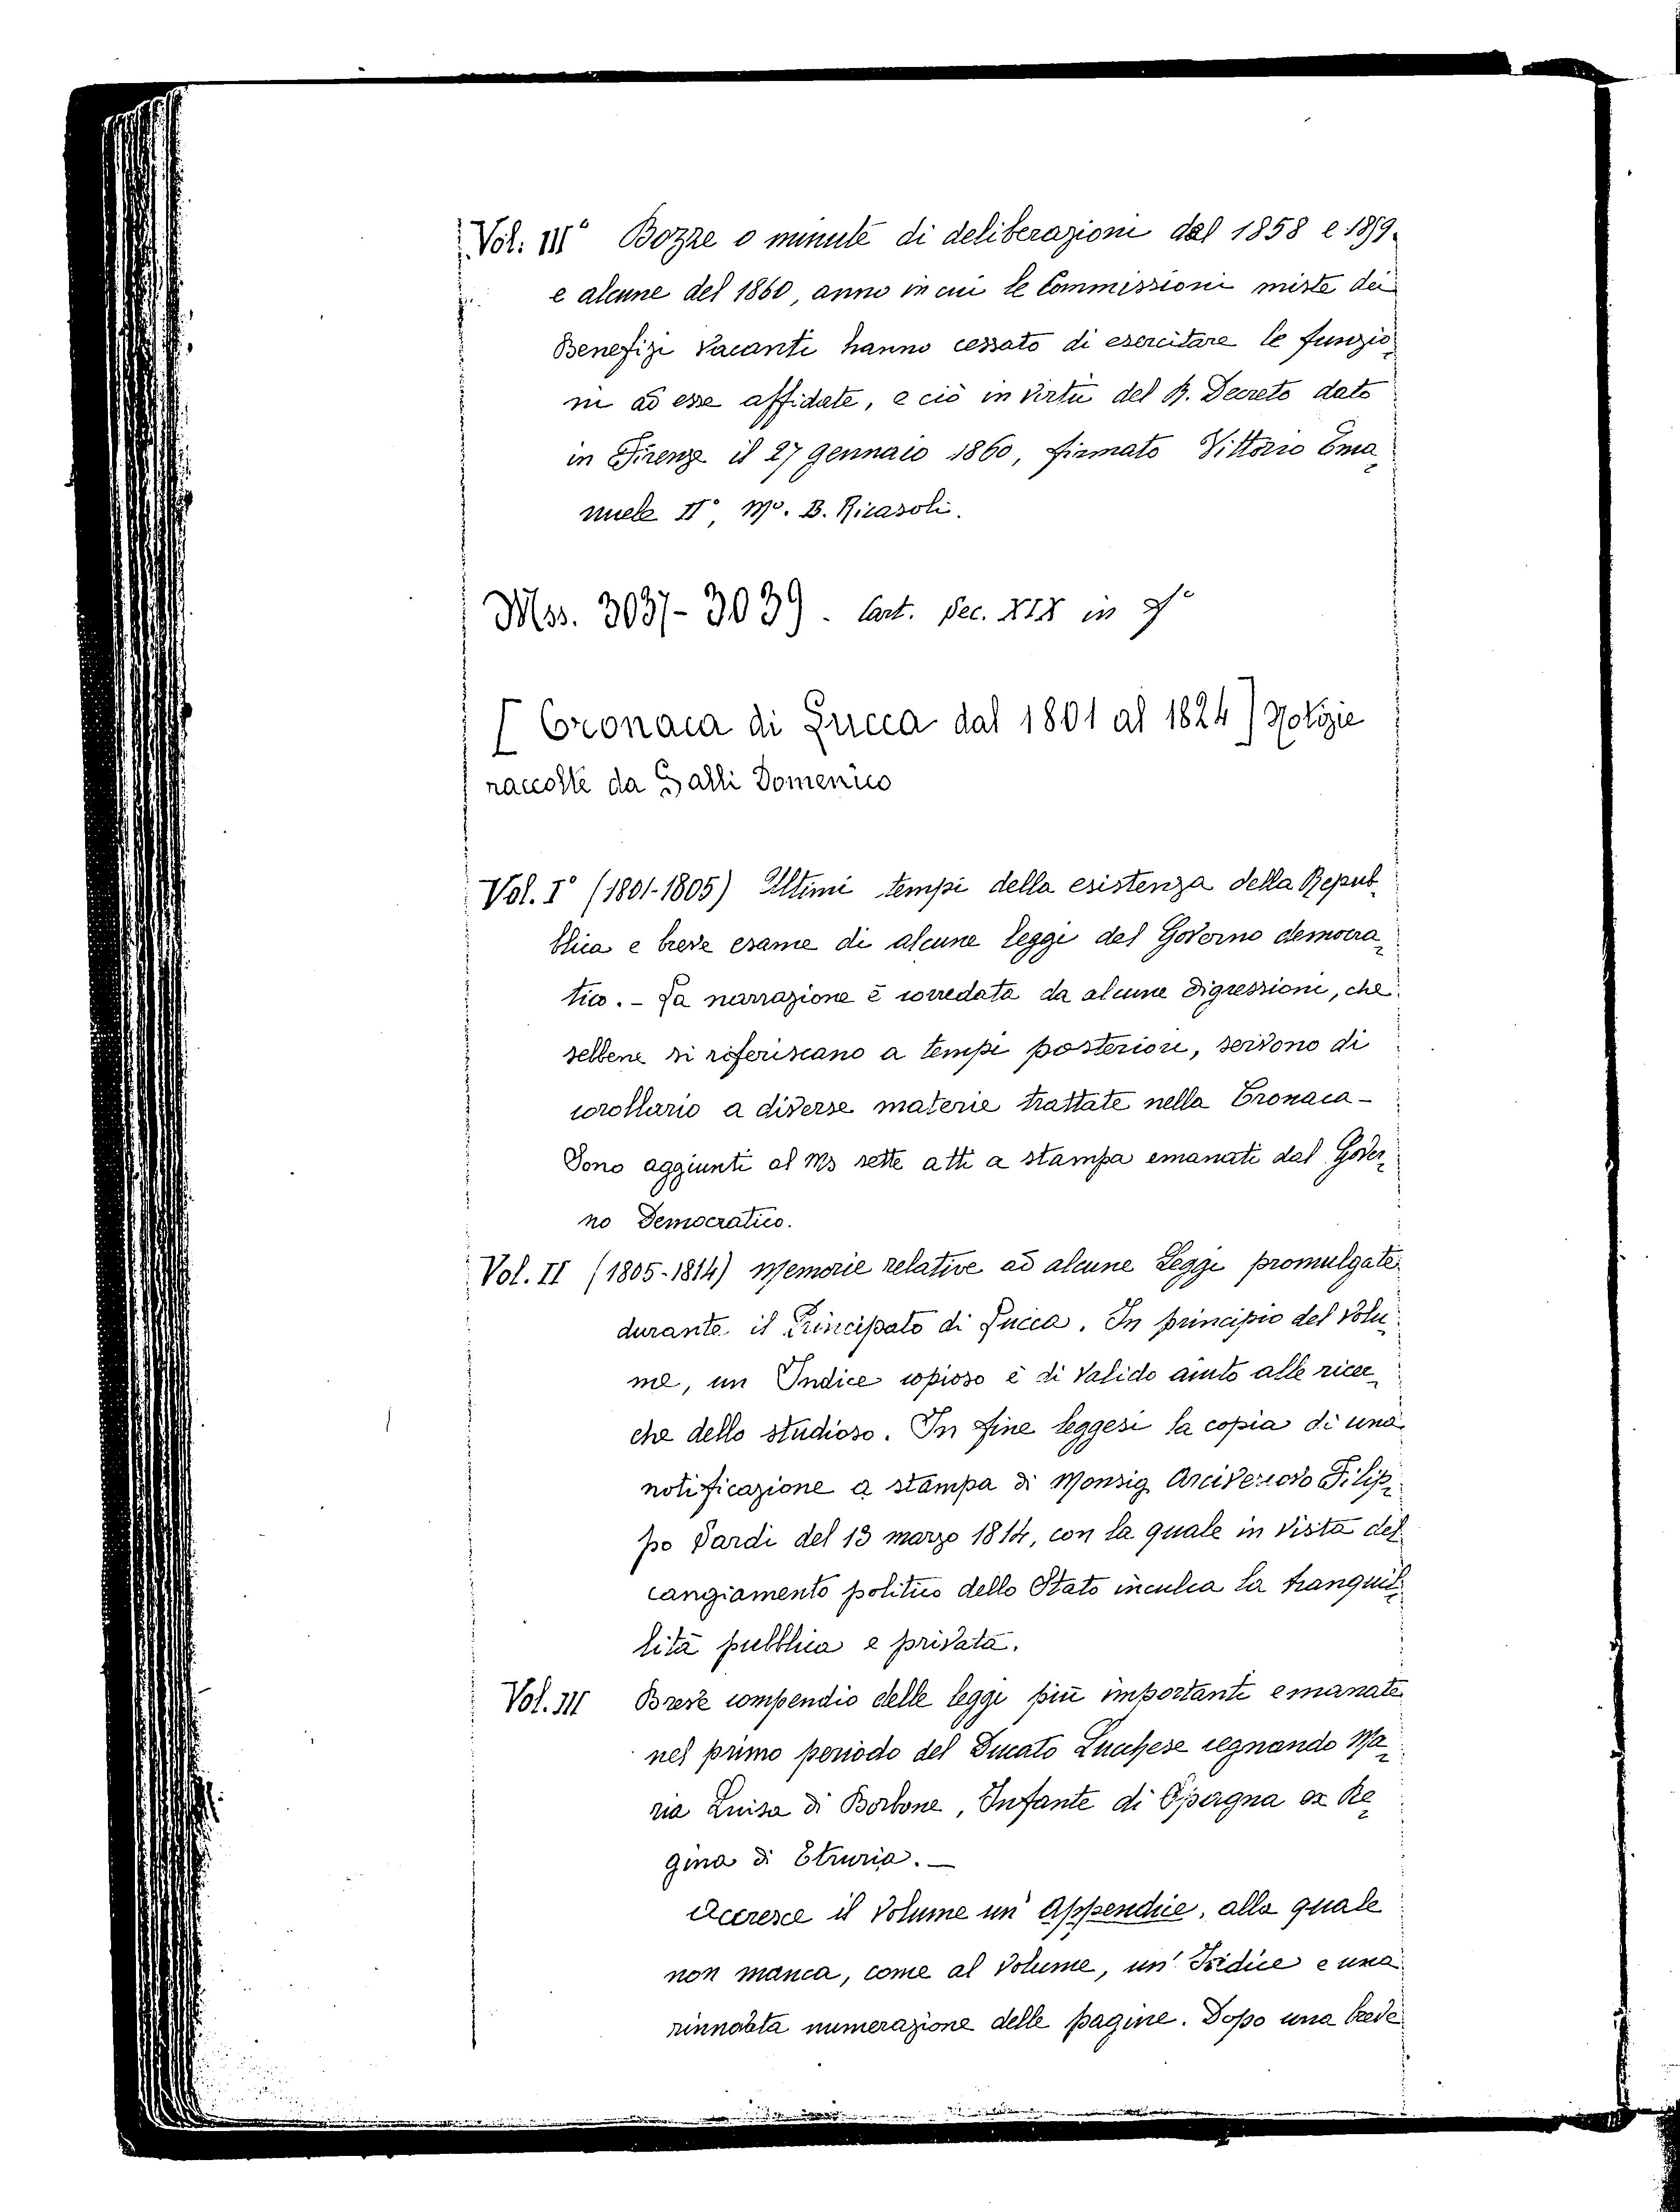 Vol. III° Bozze o minute di deliberazioni del 1858 e 1859
e alcune del 1860, anno in cui le Commissioni miste dei
Benefizi Vacanti hanno cessato di esercitare le funzio¬
ni ad esse affidate, e ciò in virtù del R. Decreto dato
in Firenze il 27 gennaio 1860, firmato Vittorio Ema¬
nuele II°, M°. B. Ricasoli.
Mss. 3037-3039. Cart. Sec. XIX in f°
[Cronaca di Lucca dal 1801 al 1824] Notizie
raccolte da Galli Domenico
Vol. I° (1801-1805) Ultimi tempi della esistenza della Repub¬
blica e breve esame di alcune leggi del Governo democra¬
tico. - La narrazione è corredata da alcune digressioni, che
sebbene si riferiscano a tempi posteriori, servono di
corollario a diverse materie trattate nella Cronaca -
Sono aggiunti al Ms sette atti a stampa emanati dal Gover¬
no Democratico.
Vol. II (1805-1814) Memorie relative ad alcune Leggi promulgate
durante il Principato di Lucca. In principio del Volu¬
me, un Indice copioso è di valido aiuto alle ricer¬
che dello studioso. In fine leggesi la copia di una
notificazione a stampa di Monsig. Arcivescovo Filip¬
po Sardi del 13 marzo 1814, con la quale in vista del
cangiamento politico dello Stato inculca la tranquil¬
lità pubblica e privata.
Vol. III Breve compendio delle leggi più importanti emanate
nel primo periodo del Ducato Lucchese regnando Ma¬
ria Luisa di Borbone, Infante di Spagna ex Re¬
gina di Etruria. —
Accresce il Volume un' Appendice, alla quale
non manca, come al Volume, un' Indice e una
rinnovata numerazione delle pagine. Dopo una breve